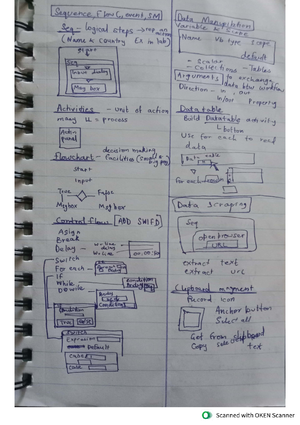 Sequence, Flowchart, SM
Seq - logical steps
(Name & country Ex in lab)
Seq
Input dialog
Msg box
Activities - unit of action
many = process
Flowchart - decision making
Start
Input
True False
Msgbox Msgbox
Control flow ADD SWIFD
Asign
Break
Delay
Switch
For each
If
While
Do while
Condition
Switch
Expression
Default
Case
Case
Data Manipulation
Variable & Scope
Name - Vb type Scope
default
- Scalar
- Collections - Tables
Arguments to exchange
data btw workflow
Direction - in, out
In/out Property
Datatable
Build Datatable activity
button
Use for each to read
data
For each
Data Scraping
Seq
open browser
URL
extract text
extract url
Clipboard management
Record icon
Anchor button
Select all
Get from clipboard
Copy selected text
Scanned with OKEN Scanner